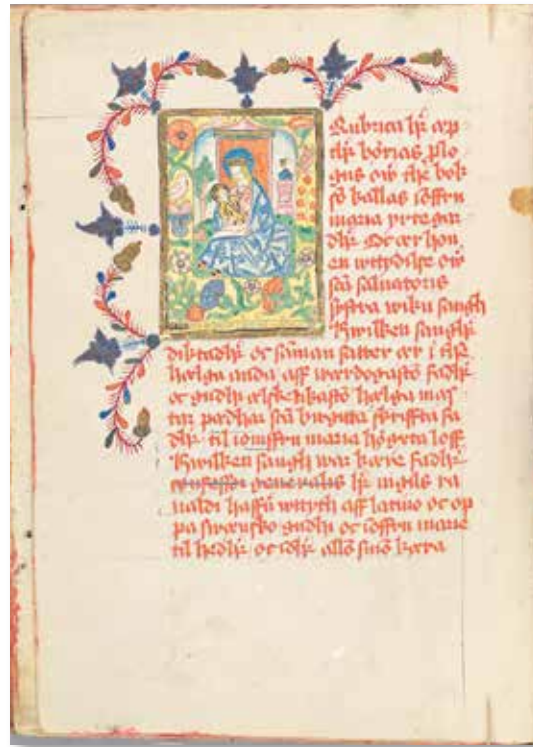 Rubrica hꝛ æp
thꝛ börias plo
gus ow the bok
so kallas ioffru
maria yrtegar
dhꝛ Oc ær hon
en wttydilse ow
sca saluatoris
systra wiku sangh
Hwilken sanghꝛ
diktadhꝛ oc saman satter ær i
hælga anda aff wærdogasto fadhꝛ
oc gudhꝛ ælskelikasto hælga mas
tar pædhar sca birgitta scriffta fa
dhꝛ til iomffru maria högeta loff
Hwilken sangh war kære fadhꝛ
confessor generalis hꝛ ingils ra
ualdi haffꝛ wttyth aff latino oc op
pa swænsko gudhi oc ioffru marie
til hedhꝛ oc idhꝛ allo sino kæra